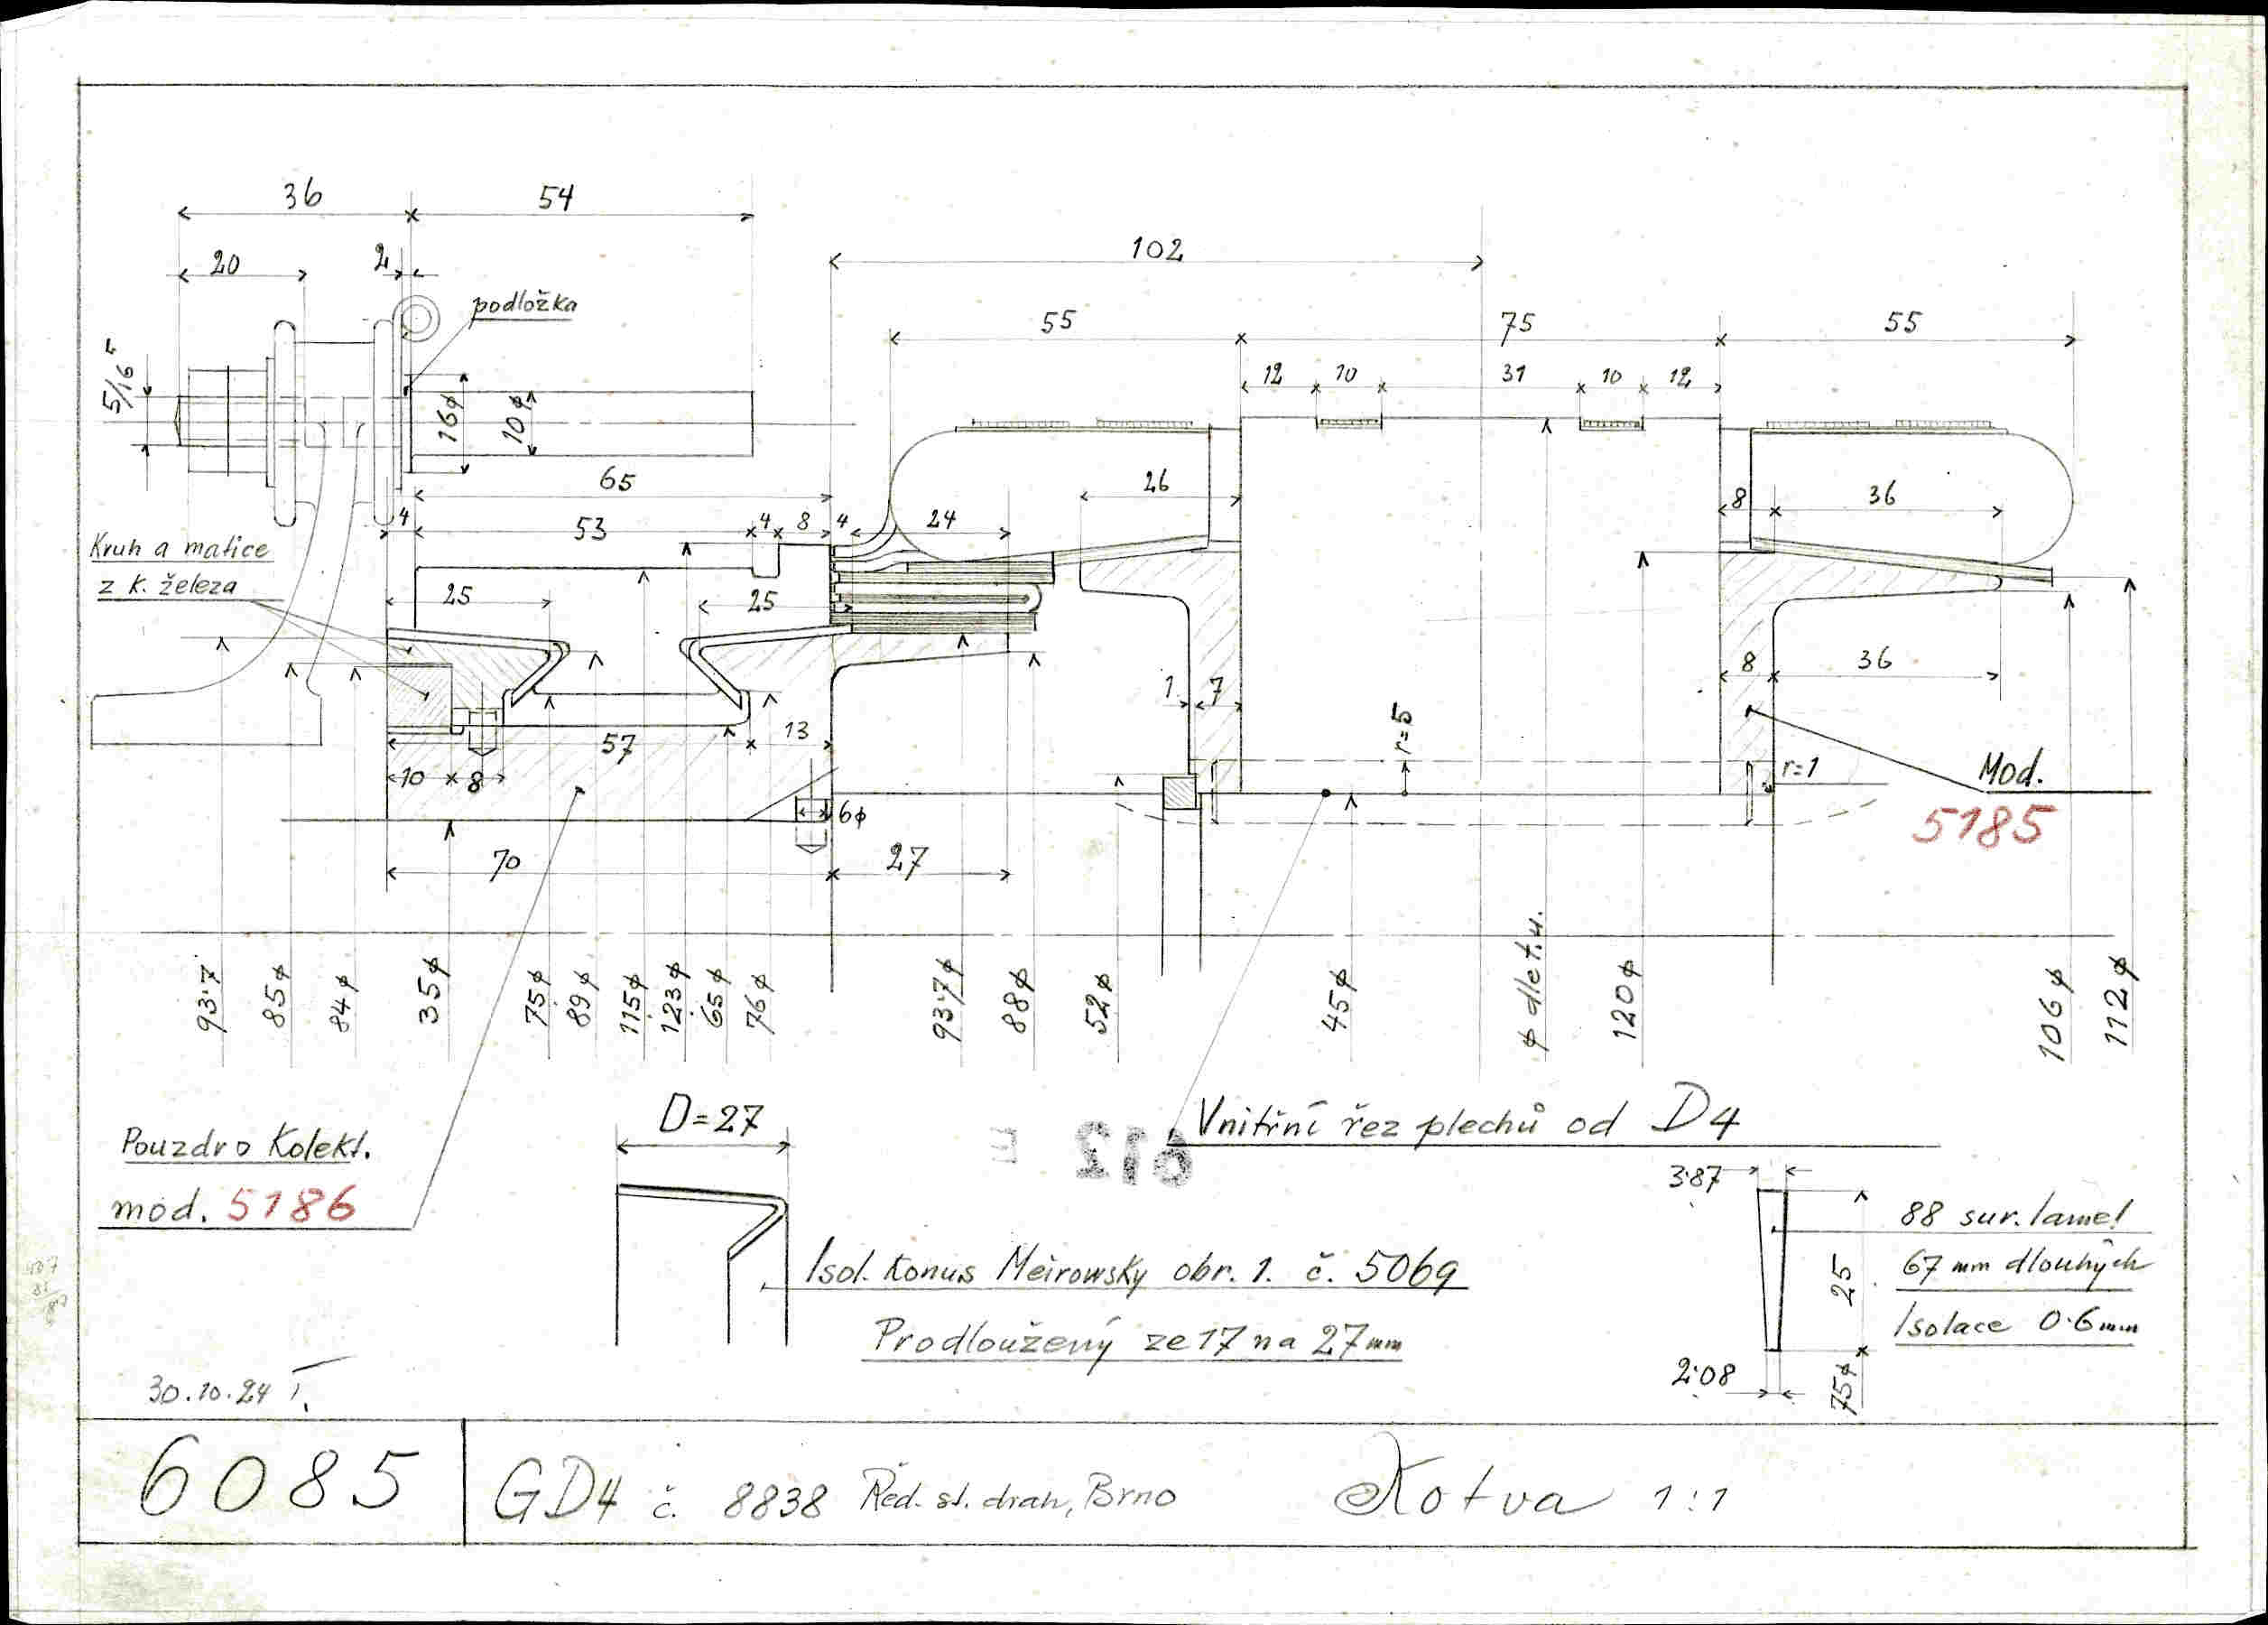 36
54
102
20
2
podložka
55
75
55
5/16"
12
10
31
10
12
16⌀
10⌀
65
26
8
36
4
53
4
8
4
24
Kruh a matice
z k. železa
25
25
8
36
1
7
57
13
r=5
10
8
6⌀
r=1
Mod.
5185
70
27
93·7
85⌀
84⌀
35⌀
75⌀
89⌀
115⌀
123⌀
65⌀
76⌀
93·7⌀
88⌀
52⌀
45⌀
⌀ dle t.u.
120⌀
106⌀
112⌀
D=27
Vnitřní řez plechů od D4
Pouzdro Kolekt.
mod. 5186
612
3·87
88 sur. lamel
67 mm dlouhých
Isolace 0·6mm
25
2·08
75⌀
Isol. Konus Meirowsky obr. 1. č. 5069
Prodloužený ze 17 na 27mm
30.10.24
6085
GD4 č. 8838 Řed. st. drah, Brno
Kotva 1:1